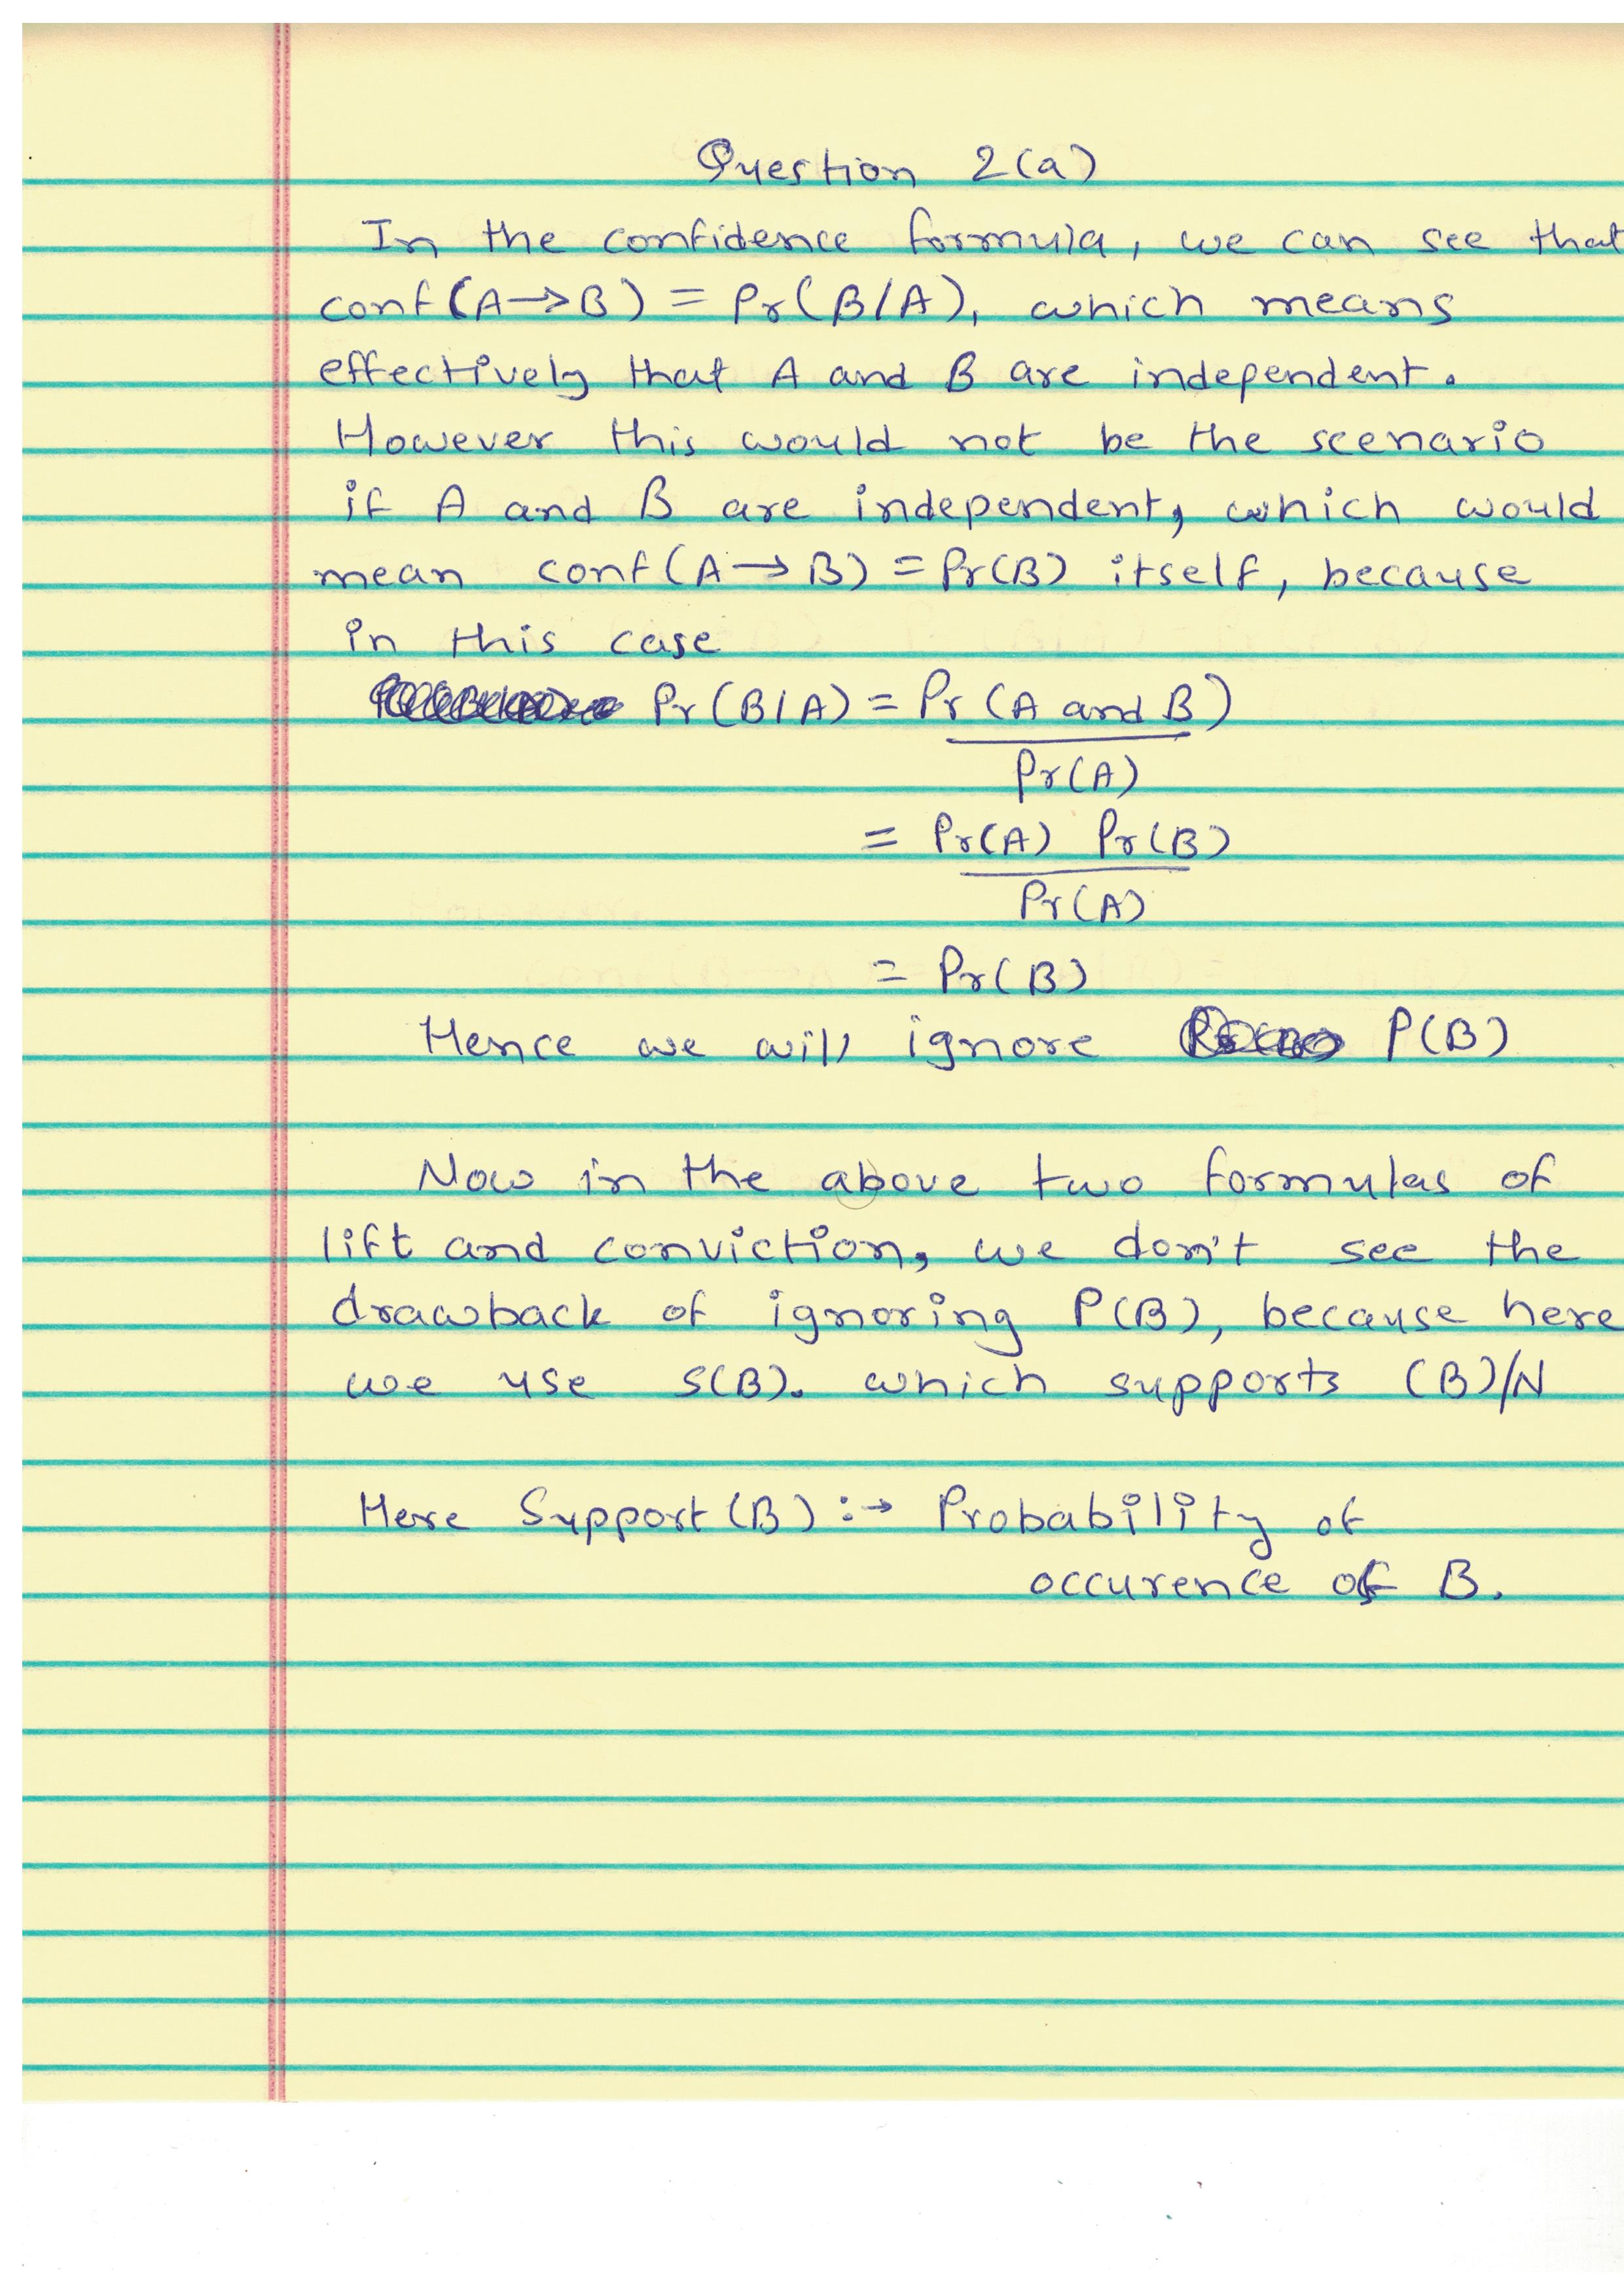 Question 2(a)
In the confidence formula, we can see that
conf(A→B) = Pr(B/A), which means
effectively that A and B are independent.
However this would not be the scenario
if A and B are independent, which would
mean conf(A→B) = Pr(B) itself, because
in this case
Pr(B/A) = Pr(A and B)
Pr(A)
= Pr(A) Pr(B)
Pr(A)
= Pr(B)
Hence we will ignore P(B)
Now in the above two formulas of
lift and conviction, we don't see the
drawback of ignoring P(B), because here
we use S(B). which supports (B)/N
Here Support(B) :→ Probability of
occurence of B.